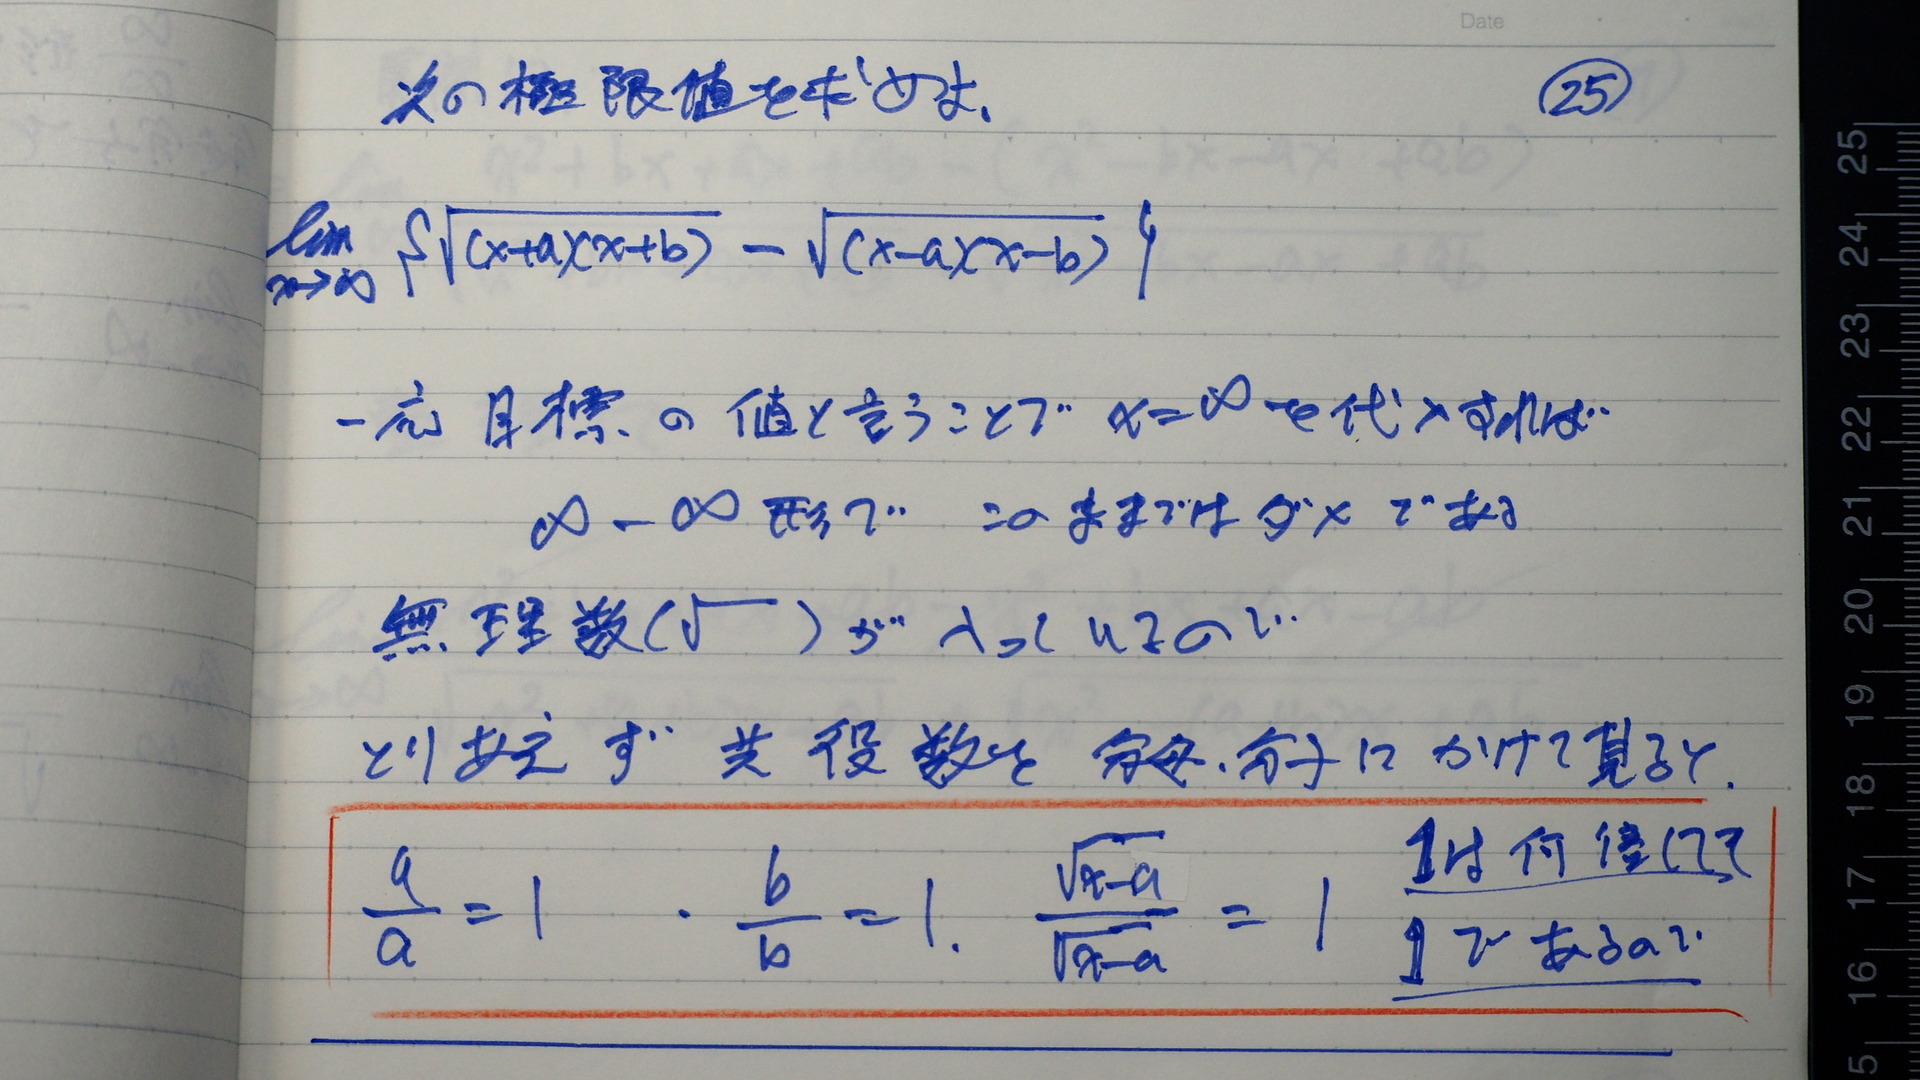 Date
次の極限値を求めよ. ㉕
lim x→∞ {√(x+a)(x+b) − √(x−a)(x−b)}
一応 目標の値と言うことで x=∞を代入すれば
∞−∞ 形で このままではダメである
無理数(√ )が入っているので
とりあえず 共役数を 分母.分子にかけて見ると.
a/a = 1 ・ b/b = 1. √x−a/√x−a = 1 1は何倍しても
1であるので
25
24
23
22
21
20
19
18
17
16
5